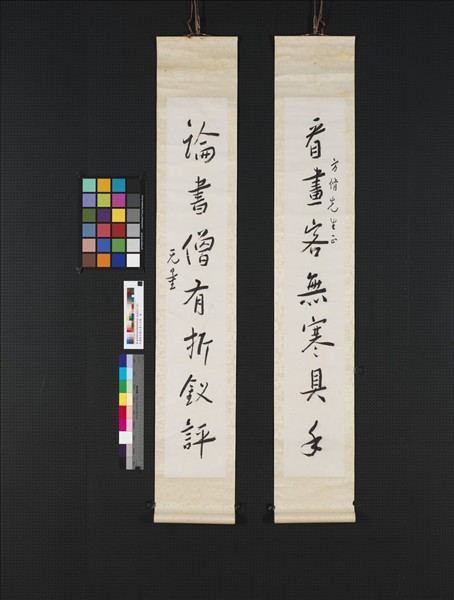 看畫客無寒具手
方脩先生正
論書僧有折釵評
元量